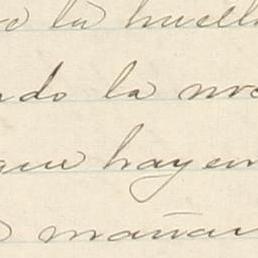 la huell
ado la no
que hay en
mañan